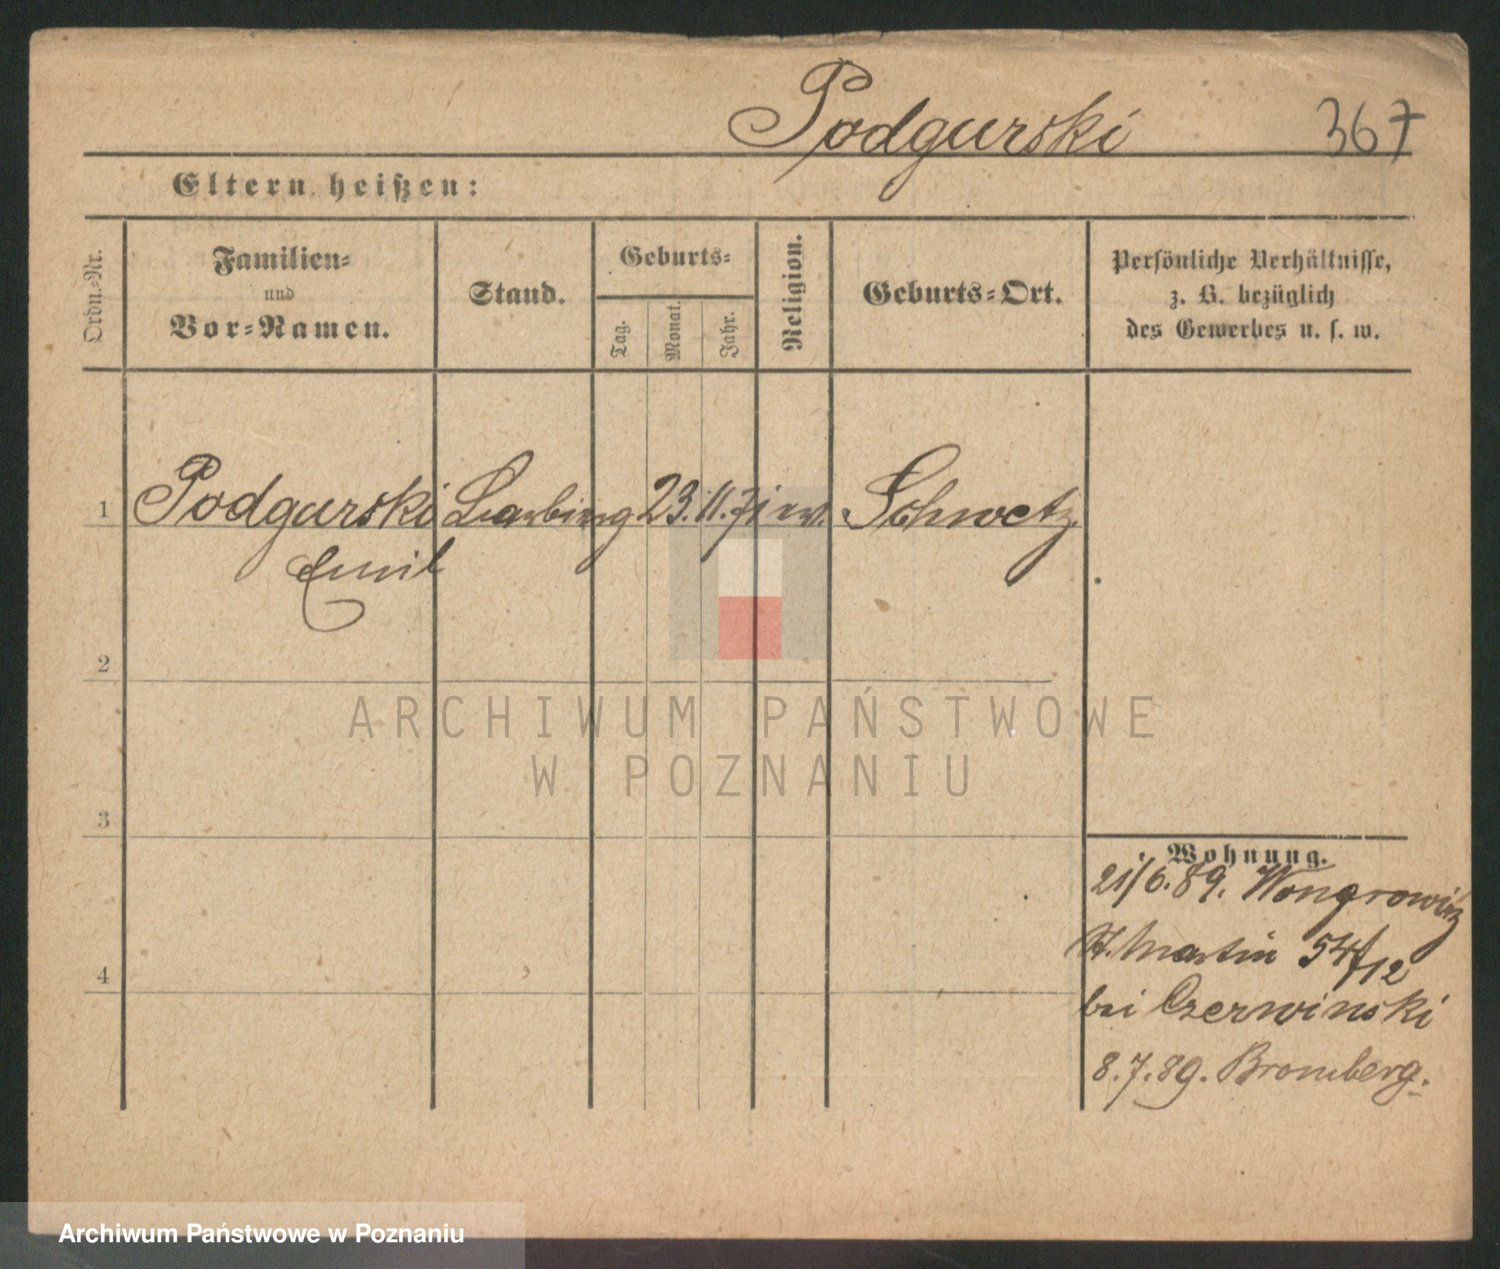 Podgurski 367
Eltern heißen:
Ordn.-Nr.
Familien-
und
Vor-Namen.
Stand.
Geburts-
Tag.
Monat.
Jahr.
Religion.
Geburts-Ort.
Persönliche Verhältnisse,
z. B. bezüglich
des Gewerbes u. s. w.
1 Podgurski 23. 11. 71 ev. Schwetz
Emil
2
3
4
Wohnung.
21/6. 89. Wongrowitz
St. Martin 54/12
bei Czerwinski
8.7.89. Bromberg.
ARCHIWUM PAŃSTWOWE
W POZNANIU
Archiwum Państwowe w Poznaniu